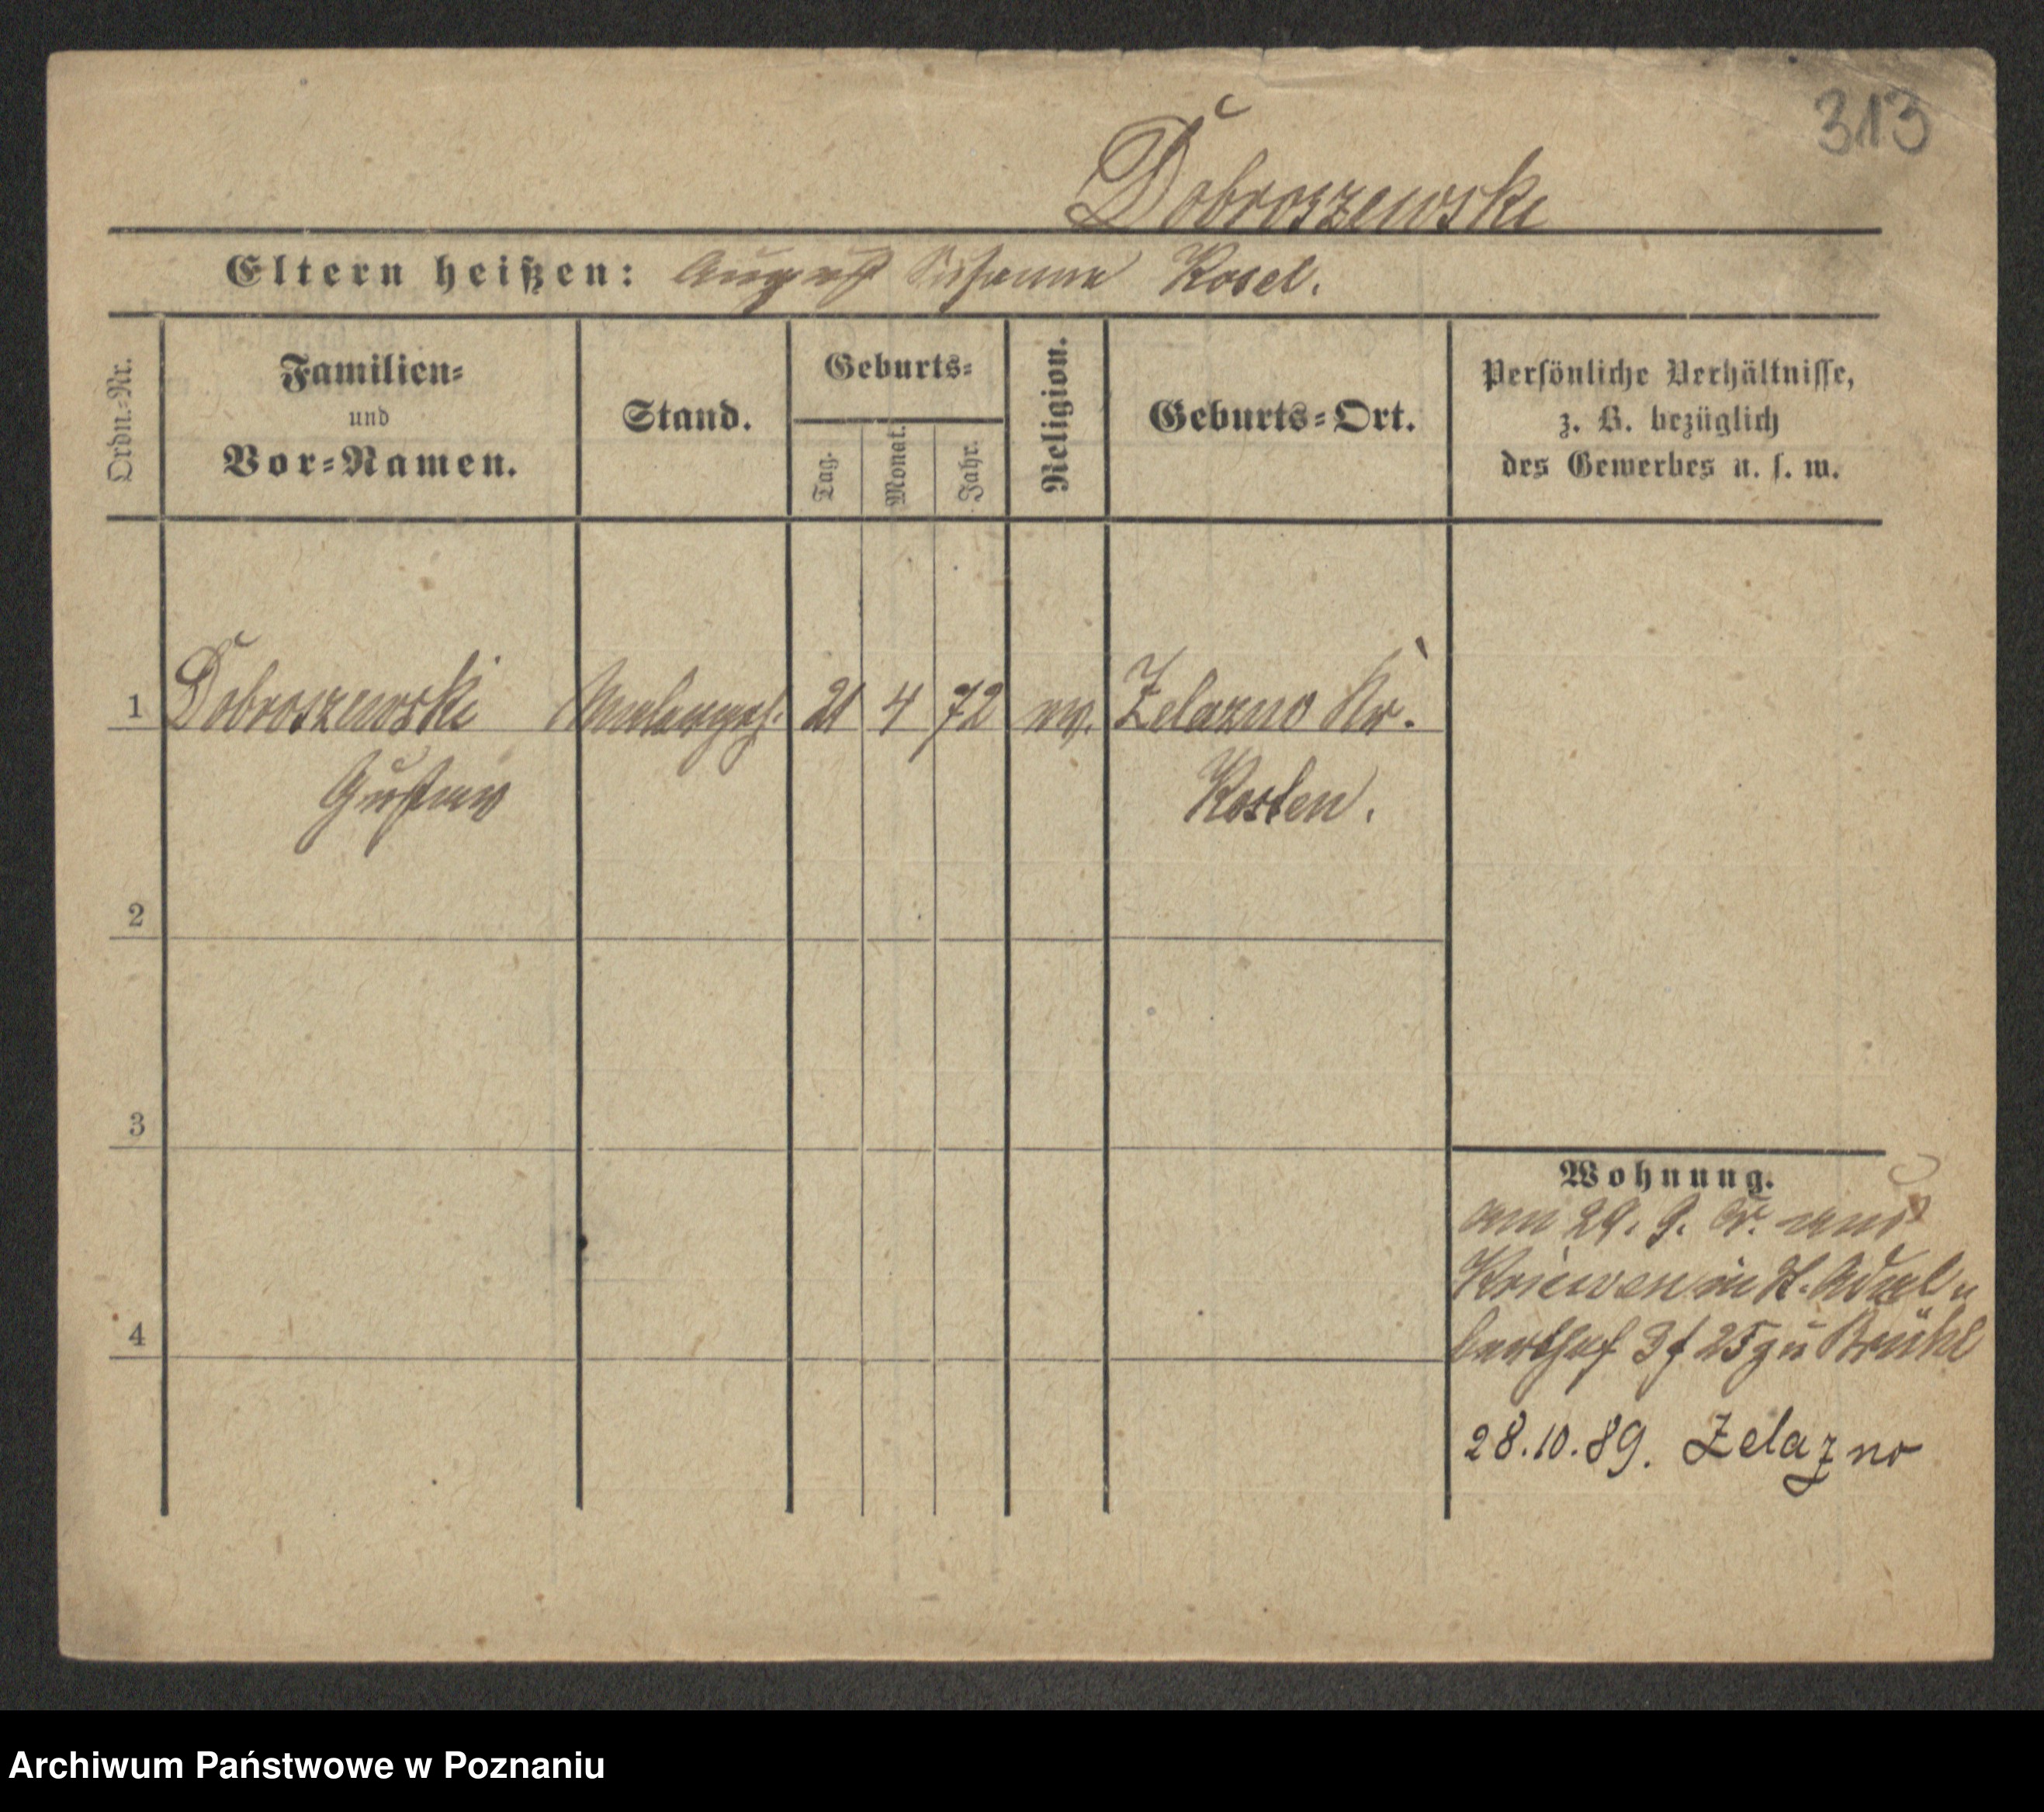 313
Dobroszewski
Eltern heißen: August Susanna Kosel.
Ordn.-Nr.
Familien-
und
Vor-Namen.
Stand.
Geburts-
Tag.
Monat.
Jahr.
Religion.
Geburts-Ort.
Persönliche Verhältnisse,
z. B. bezüglich
des Gewerbes u. s. w.
1 Dobroszewski 21 4 72 ev. Zelazno Kr.
Gustav Kosten.
2
3
4
Wohnung.
am 29. 9. cr. aus
Kriewen in St.
25 zu Brühl
28.10.89. Zelazno
Archiwum Państwowe w Poznaniu